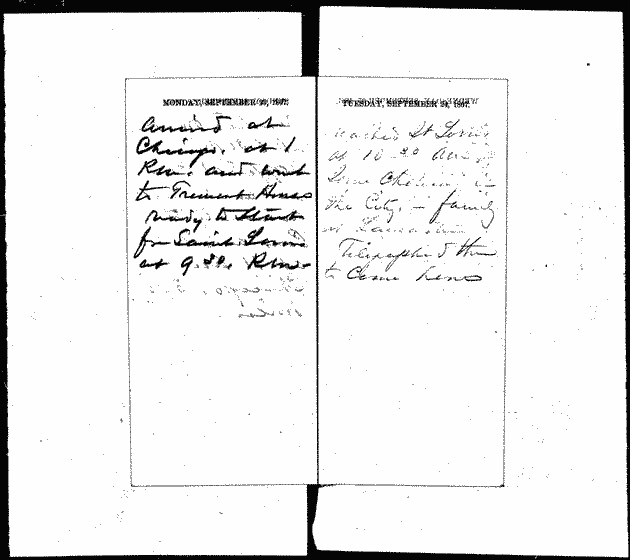 MONDAY, SEPTEMBER 23, 1867.
Arrived at
Chicago. at 1
P.M. and went
to Tremont House
ready to Start
for Saint Louis
at 9.30. P.M.
TUESDAY, SEPTEMBER 24, 1867.
reached St Louis
at 10.30 A.M.
Some Cholera in
the City. – family
in Lancaster
Telegraphed them
to Come here